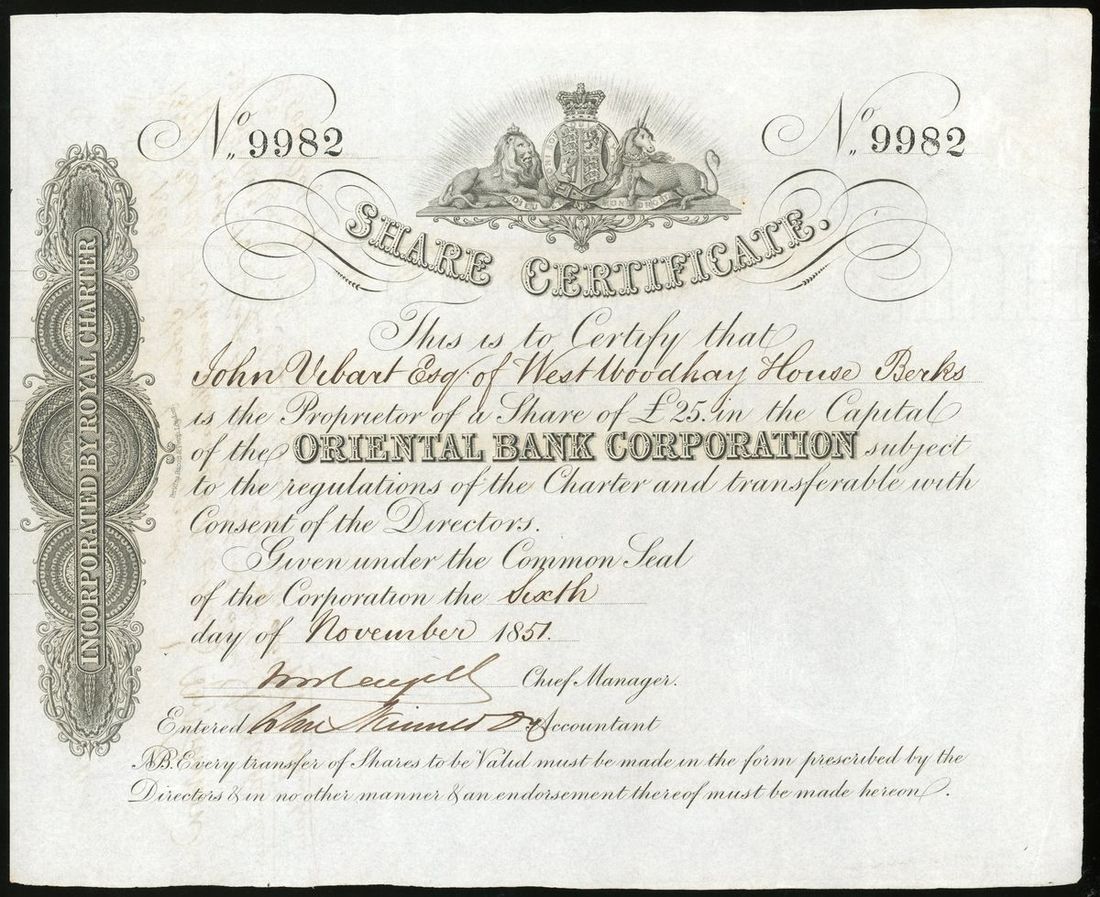 No. 9982
No. 9982
DIEU ET MON DROIT
SHARE CERTIFICATE.
INCORPORATED BY ROYAL CHARTER
This is to Certify that
John Vibart Esq. of West Woodhay House Berks
is the Proprietor of a Share of £25. in the Capital
of the ORIENTAL BANK CORPORATION subject
to the regulations of the Charter and transferable with
Consent of the Directors.
Given under the Common Seal
of the Corporation the Sixth
day of November 1851.
Chief Manager.
Entered John Skinner Accountant
NB. Every transfer of Shares to be Valid must be made in the form prescribed by the
Directors & in no other manner & an endorsement thereof must be made hereon.